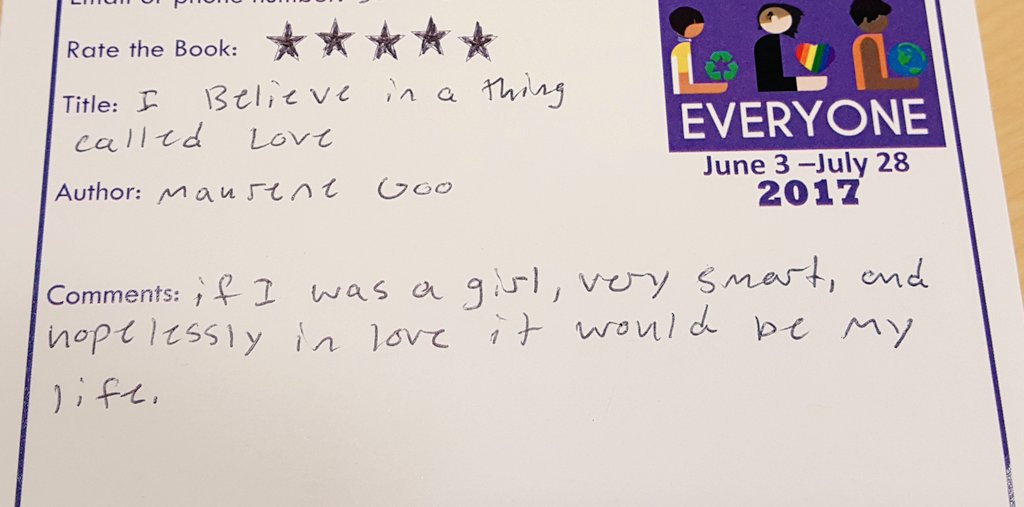 Rate the Book: ★★★★★
Title: I Believe in a thing
called Love
Author: Maurene Goo
Comments: if I was a girl, very smart, and
hopelessly in love it would be my
life.
EVERYONE
June 3 –July 28
2017